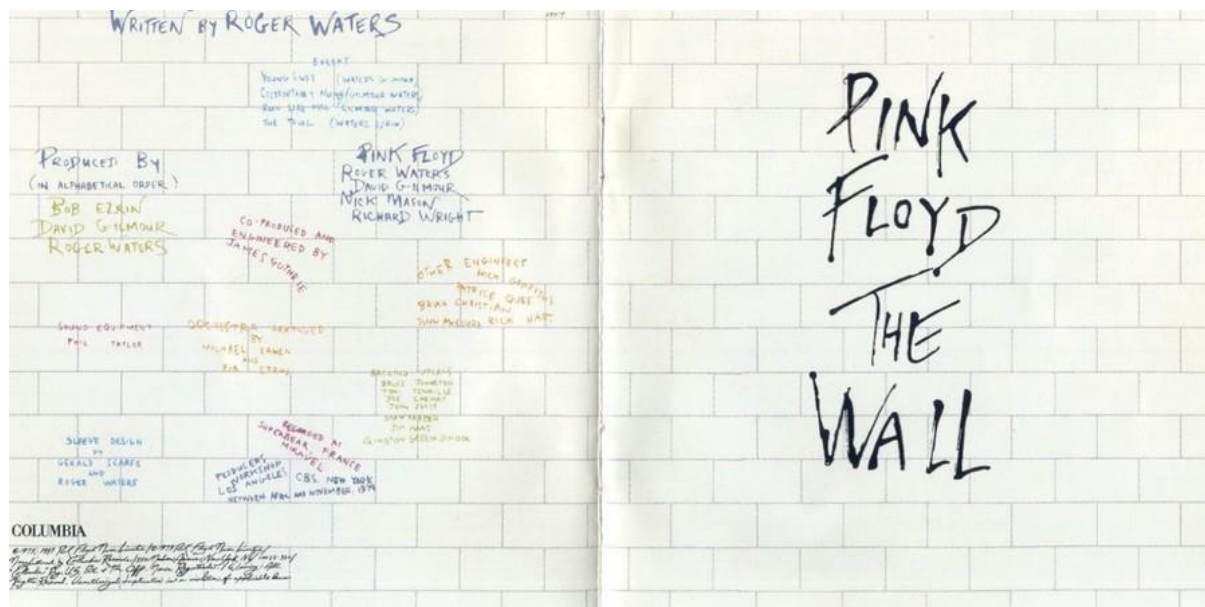 WRITTEN BY ROGER WATERS
EXCEPT
YOUNG LUST (WATERS GILMOUR)
COMFORTABLY NUMB (GILMOUR WATERS)
RUN LIKE HELL (GILMOUR WATERS)
THE TRIAL (WATERS EZRIN)
PRODUCED BY
(IN ALPHABETICAL ORDER)
BOB EZRIN
DAVID GILMOUR
ROGER WATERS
PINK FLOYD
ROGER WATERS
DAVID GILMOUR
NICK MASON
RICHARD WRIGHT
CO-PRODUCED AND
ENGINEERED BY
JAMES GUTHRIE
OTHER ENGINEERS
NICK GRIFFITHS
PATRICE QUEF
BRIAN CHRISTIAN
RICK HART
SOUND EQUIPMENT
PHIL TAYLOR
ORCHESTRA ARRANGED
BY
MICHAEL KAMEN
AND
BOB EZRIN
BACKING VOCALS
BRUCE JOHNSTON
TONI TENNILLE
JOE CHEMAY
JOHN JOYCE
STAN FARBER
JIM HAAS
ISLINGTON GREEN SCHOOL
SLEEVE DESIGN
BY
GERALD SCARFE
AND
ROGER WATERS
RECORDED AT
SUPERBEAR, FRANCE
MIRAVEL
PRODUCERS
WORKSHOP
LOS ANGELES, CBS. NEW YORK
BETWEEN APRIL AND NOVEMBER. 1979
COLUMBIA
PINK
FLOYD
THE
WALL